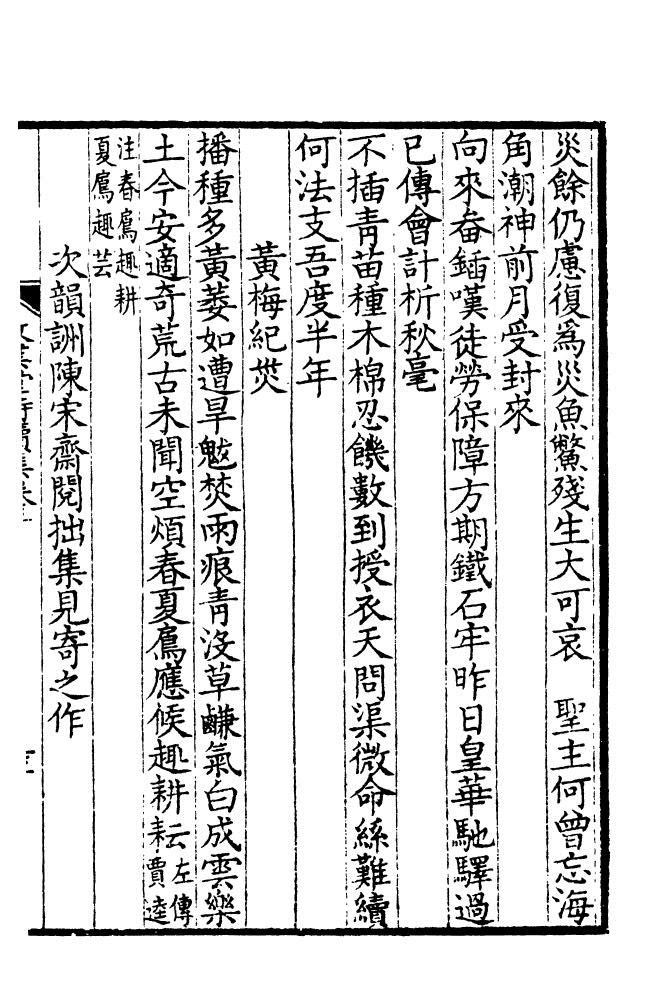 災餘仍慮復爲災魚鱉殘生大可哀　聖主何曾忘海
角潮神前月受封來
向來畚鍤嘆徒勞保障方期鐵石牢昨日皇華馳驛過
已傳會計析秋毫
不插青苗種木棉忍饑數到授衣天問渠微命絲難續
何法支吾度半年
黃梅紀災
播種多黃萎如遭旱魃焚雨痕青沒草鹻氣白成雲樂
土今安適奇荒古未聞空煩春夏鳸應候趣耕耘左傳賈逵
注春鳸趣耕
夏鳸趣芸
次韻詶陳宋齋閱拙集見寄之作